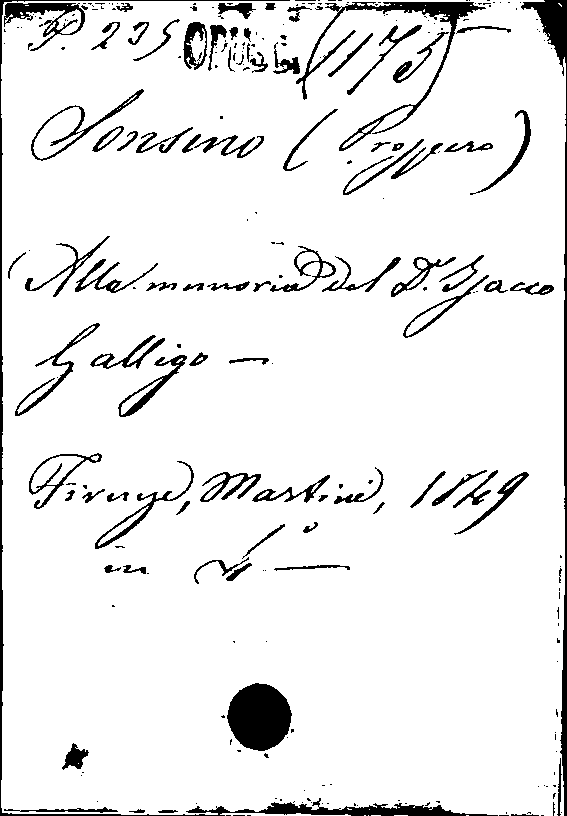 P. 235 OPUSC. (1175)
Sonsino (Prospero)
Alla memoria del Dr. Isacco
Galligo —
Firenze, Martini, 1849
in 4° —